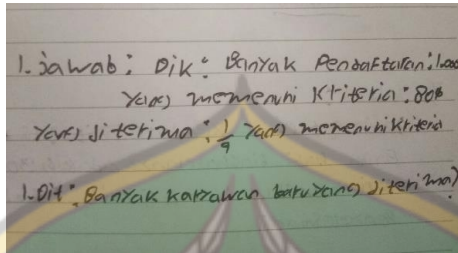 1. Jawab : Dik : Banyak Pendaftaran : 1.000
Yang memenuhi Kriteria : 800
Yang diterima : 1/4 Yang memenuhi Kriteria
1. Dit : Banyak karyawan baru yang diterima?